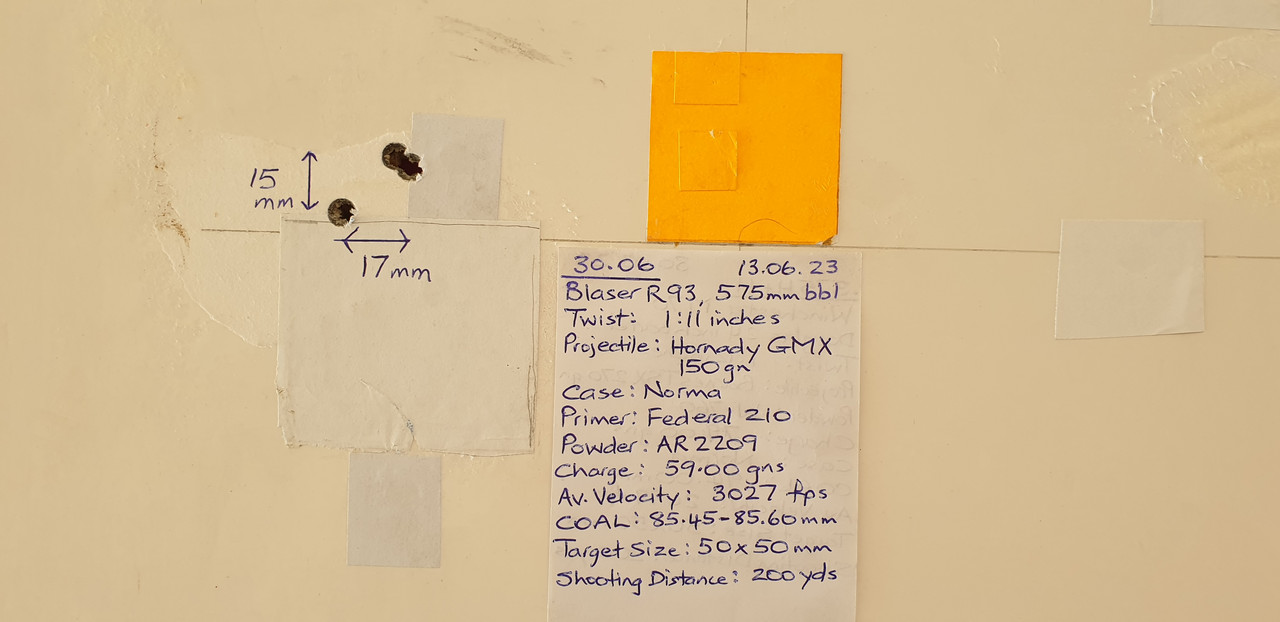 15
mm
17mm
30.06 13.06.23
Blaser R93, 575mm bbl
Twist: 1:11 inches
Projectile: Hornady GMX
150gn
Case: Norma
Primer: Federal 210
Powder: AR2209
Charge: 59.00 gns
Av. Velocity: 3027 fps
COAL: 85.45-85.60mm
Target Size: 50x50mm
Shooting Distance: 200yds